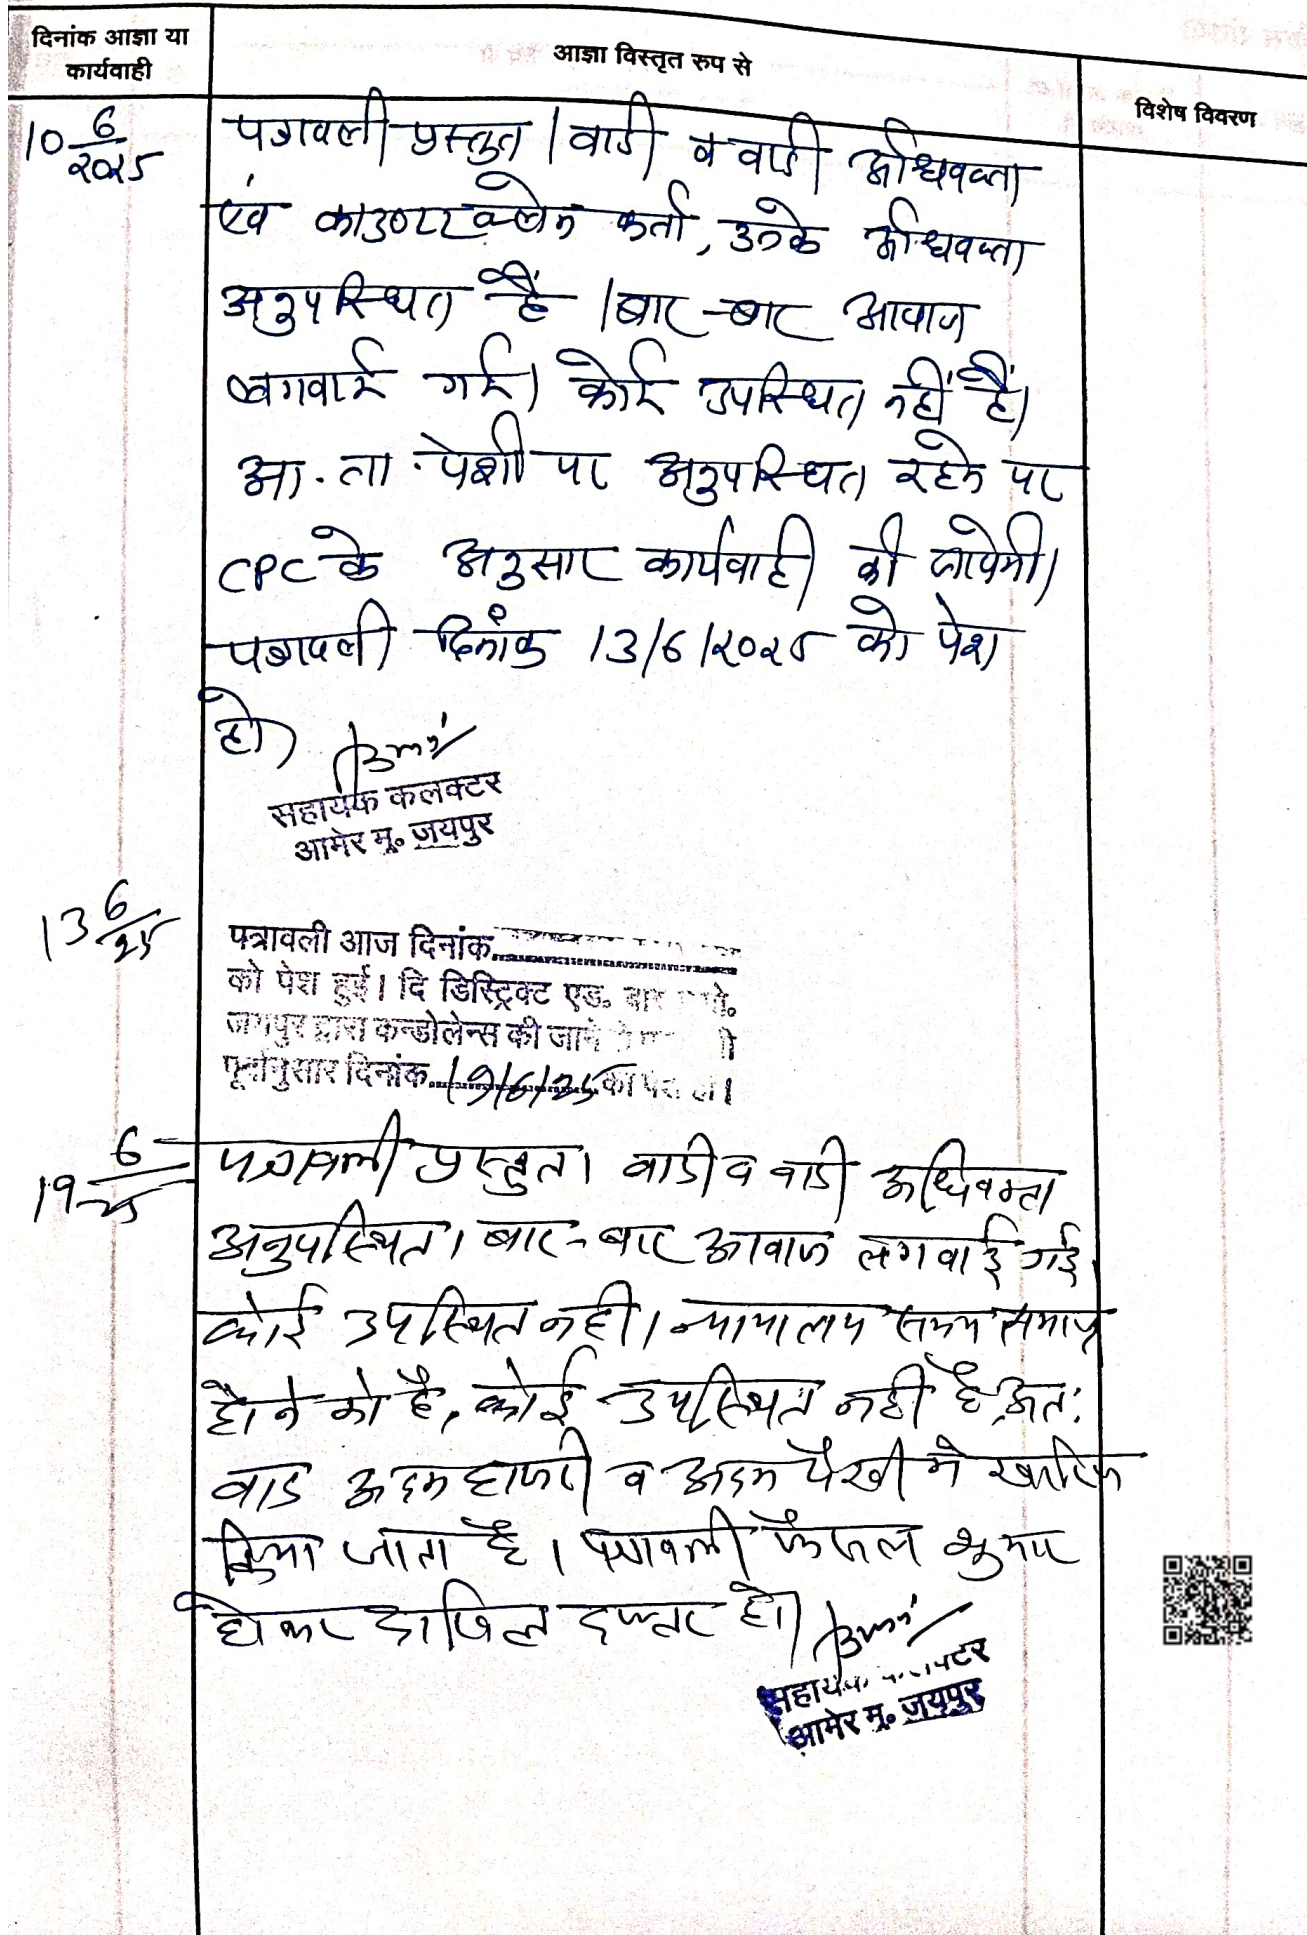 दिनांक आज्ञा या
कार्यवाही
आज्ञा विस्तृत रुप से
विशेष विवरण
10 6/2025
पत्रावली प्रस्तुत। वादी व वादी अधिवक्ता
एवं काउण्टर क्लेम कर्ता, उनके अधिवक्ता
अनुपस्थित हैं। बार-बार आवाज
लगवाई गई। कोई उपस्थित नहीं हैं।
आ. ता. पेशी पर अनुपस्थित रहने पर
CPC के अनुसार कार्यवाही की जायेगी।
पत्रावली दिनांक 13/6/2025 को पेश
हो।
सहायक कलक्टर
आमेर मु॰ जयपुर
13 6/25
पत्रावली आज दिनांक
को पेश हुई। दि डिस्ट्रिक्ट एड॰ बार
जयपुर द्वारा कन्डोलेन्स की जाने
पूर्वानुसार दिनांक 19/6/25 को पेश हो।
19 6/25
पत्रावली प्रस्तुत। वादी व वादी अधिवक्ता
अनुपस्थित। बार-बार आवाज लगवाई गई।
कोई उपस्थित नही। न्यायालय समय समाप्त
होने को है, कोई उपस्थित नही है, अतः
वाद अदम हाजरी व अदम पैरवी में खारिज
किया जाता है। पत्रावली फैसल शुमार
होकर दाखिल दफ्तर हो।
सहायक कलक्टर
आमेर मु॰ जयपुर